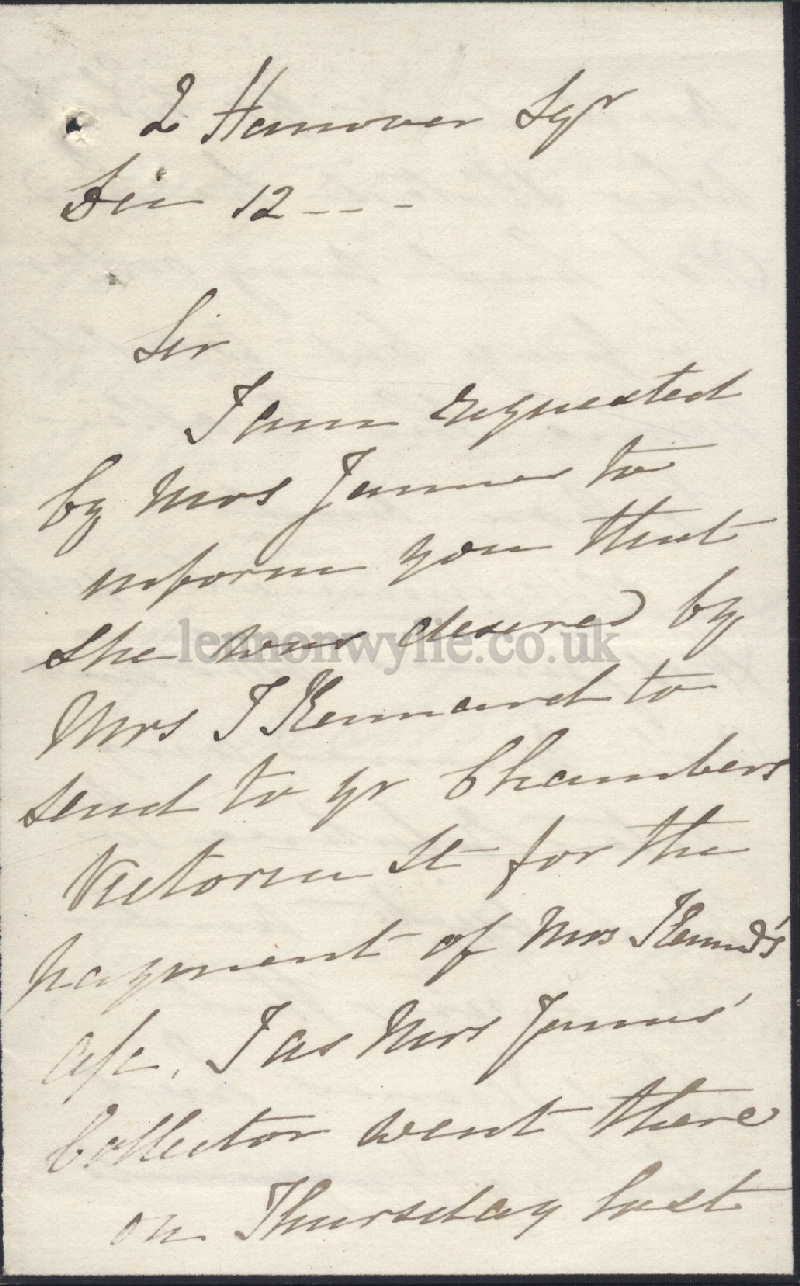 2 Hanover Sqr
Dec 12 ---
Sir
I am requested
by Mrs James to
inform you that
she was desired by
lennonwylie.co.uk
Mrs T Kennard to
send to yr Chambers
Victoria St for the
payment of Mrs
a/c, I as Mrs James'
Collector went there
on Thursday last